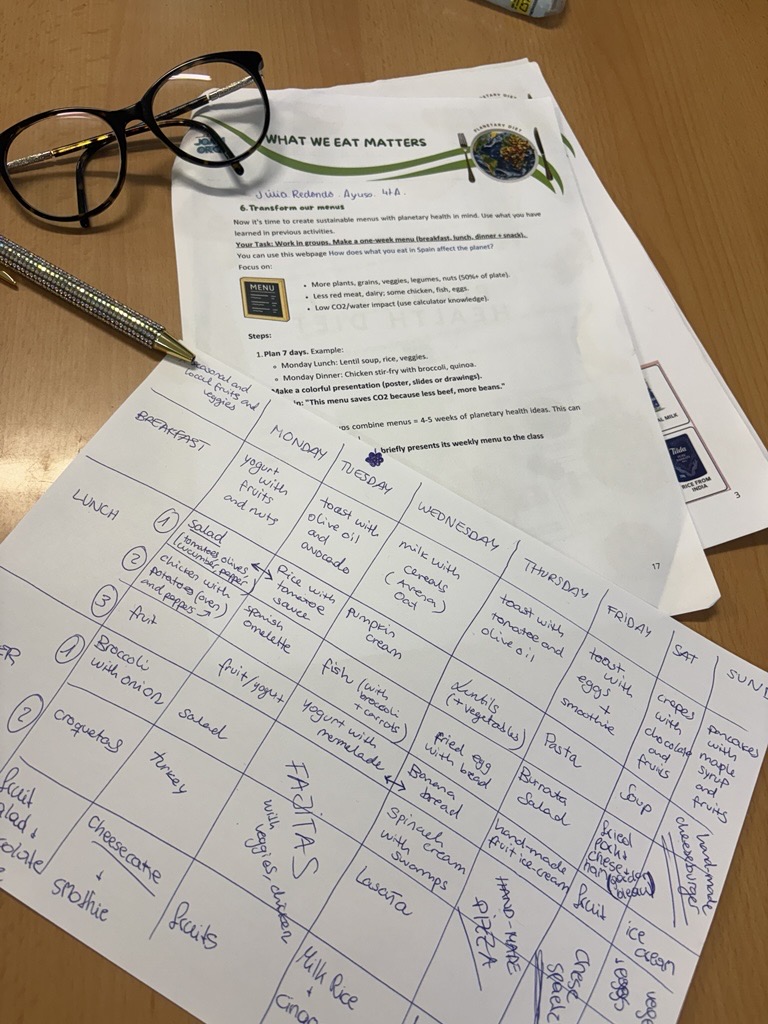 WHAT WE EAT MATTERS
PLANETARY DIET
Júlia Redondo Ayuso 4tA.
6. Transform our menus
Now it's time to create sustainable menus with planetary health in mind. Use what you have
learned in previous activities.
Your Task: Work in groups. Make a one-week menu (breakfast, lunch, dinner + snack).
You can use this webpage How does what you eat in Spain affect the planet?
Focus on:
MENU
More plants, grains, veggies, legumes, nuts (50%+ of plate).
Less red meat, dairy; some chicken, fish, eggs.
Low CO2/water impact (use calculator knowledge).
Steps:
1. Plan 7 days. Example:
Monday Lunch: Lentil soup, rice, veggies.
Monday Dinner: Chicken stir-fry with broccoli, quinoa.
Make a colorful presentation (poster, slides or drawings).
"This menu saves CO2 because less beef, more beans."
combine menus = 4-5 weeks of planetary health ideas. This can
briefly presents its weekly menu to the class
17
MILK
Tilda
RICE FROM
INDIA
3
seasonal and
local fruits and
veggies
MONDAY
TUESDAY
WEDNESDAY
THURSDAY
FRIDAY
SAT
SUND
BREAKFAST
yogurt
with
fruits
and nuts
toast with
olive oil
and
avocado
milk with
cereals
(Avena)
Oat
toast with
tomatoe and
olive oil
toast
with
eggs
+
smoothie
crepes
with
chocolate
and
fruits
pancakes
with
maple
syrup
and
fruits
LUNCH
1
Salad
(tomatoes, olives,
cucumber, pepper
Rice with
tomatoe
sauce
Pumpkin
cream
Lentils
(+ vegetables)
Pasta
Soup
handmade
cheeseburger
2
chicken with
potatoes (oven)
and peppers
spanish
omelette
fish (with
broccoli
+ carrots)
fried egg
with bead
Burrata
Salad
fried
pork
3
fruit
fruit/yogurt
yogurt with
mermelade
Banana
bread
hand made
fruit ice-cream
fruit
ice
cream
ER
1
Broccoli
with onion
Salad
FAJITAS
with
veggies, chicken
Spinach
cream
with
swamps
HAND-MADE
PIZZA
2
croquetas
turkey
Lasaña
fruit
salad +
cheesecake
+
smothie
fruits
Milk Rice
+